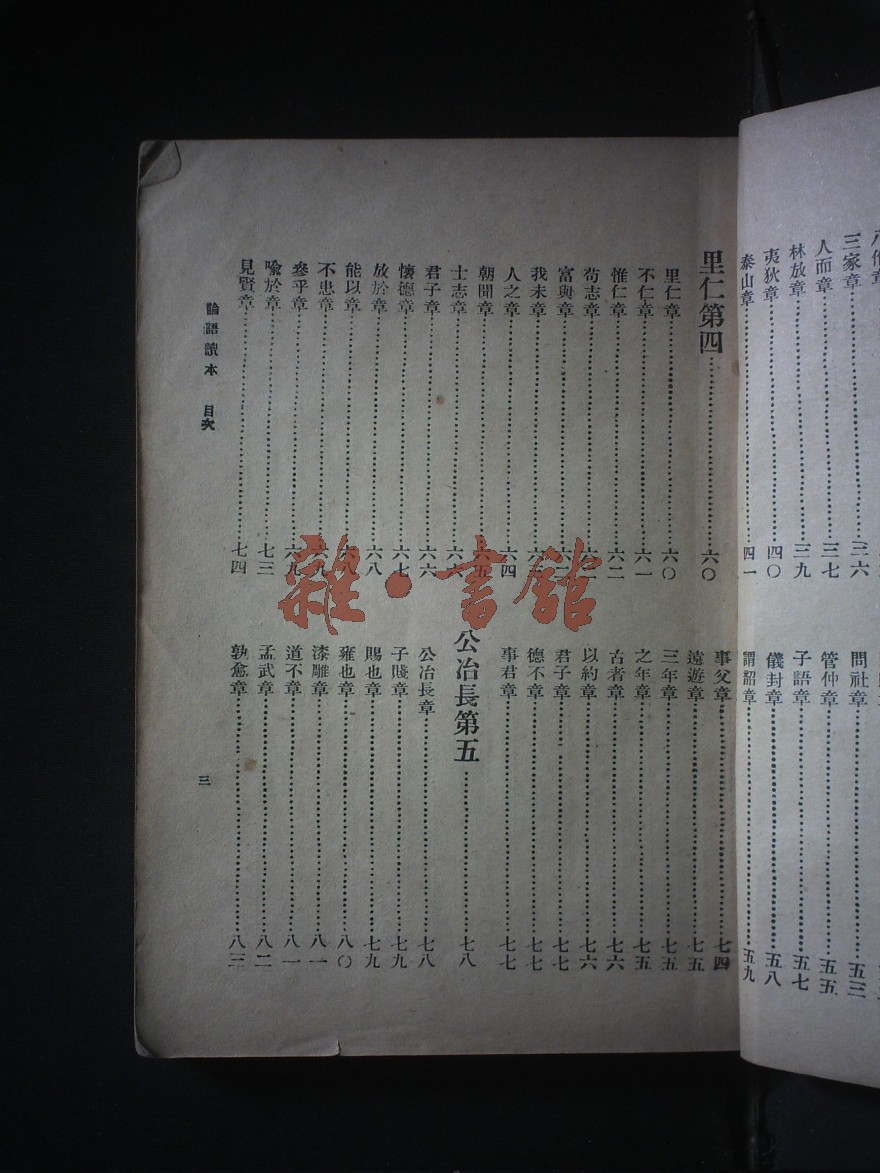 三家章
人而章……三七
林放章……三九
夷狄章……四〇
泰山章……四一
問社章……五三
管仲章……五五
子語章……五七
儀封章……五八
謂韶章……五九
里仁第四……六〇
里仁章……六〇
不仁章……六一
惟仁章……六二
苟志章
富與章
我未章
人之章……六四
朝聞章……六五
士志章……六六
君子章……六六
懷德章……六七
放於章……六八
能以章……六八
不患章……六九
參乎章……六九
喻於章……七三
見賢章……七四
事父章……七四
遠遊章……七五
三年章……七五
之年章……七五
古者章……七六
以約章……七六
君子章……七七
德不章……七七
事君章……七七
公冶長第五……七八
公冶長章……七八
子賤章……七九
賜也章……七九
雍也章……八〇
漆雕章……八一
道不章……八一
孟武章……八二
孰愈章……八三
論語讀本 目次
三
雜·書館